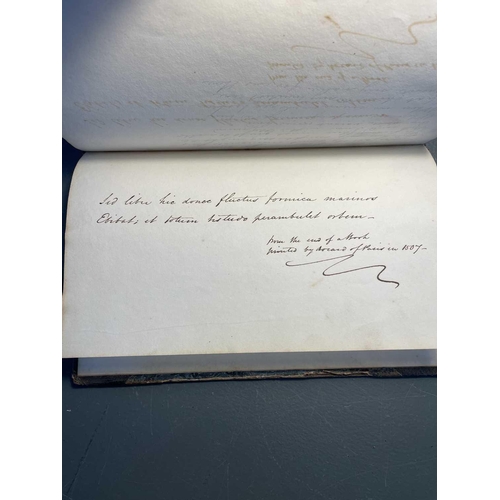 Sed libre hic donec fluctus formica marinos
Ebibat, et totum testudo perambulet orbem—
from the end of a Book
printed by Bocard of Paris in 1507—